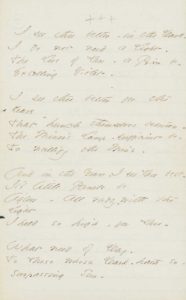 I see thee better - in the Dark -
I do not need a Light -
The Love of Thee - a Prism be -
Excelling Violet -
I see thee better for the
Years
That hunch themselves between -
The Miner's Lamp - sufficient be -
To nullify the Mine -
And in the Grave - I see Thee best -
Its little Panels be
Aglow - All ruddy with the
Light
I held so high, for Thee -
What need of Day -
To Those whose Dark - hath so -
surpassing Sun -